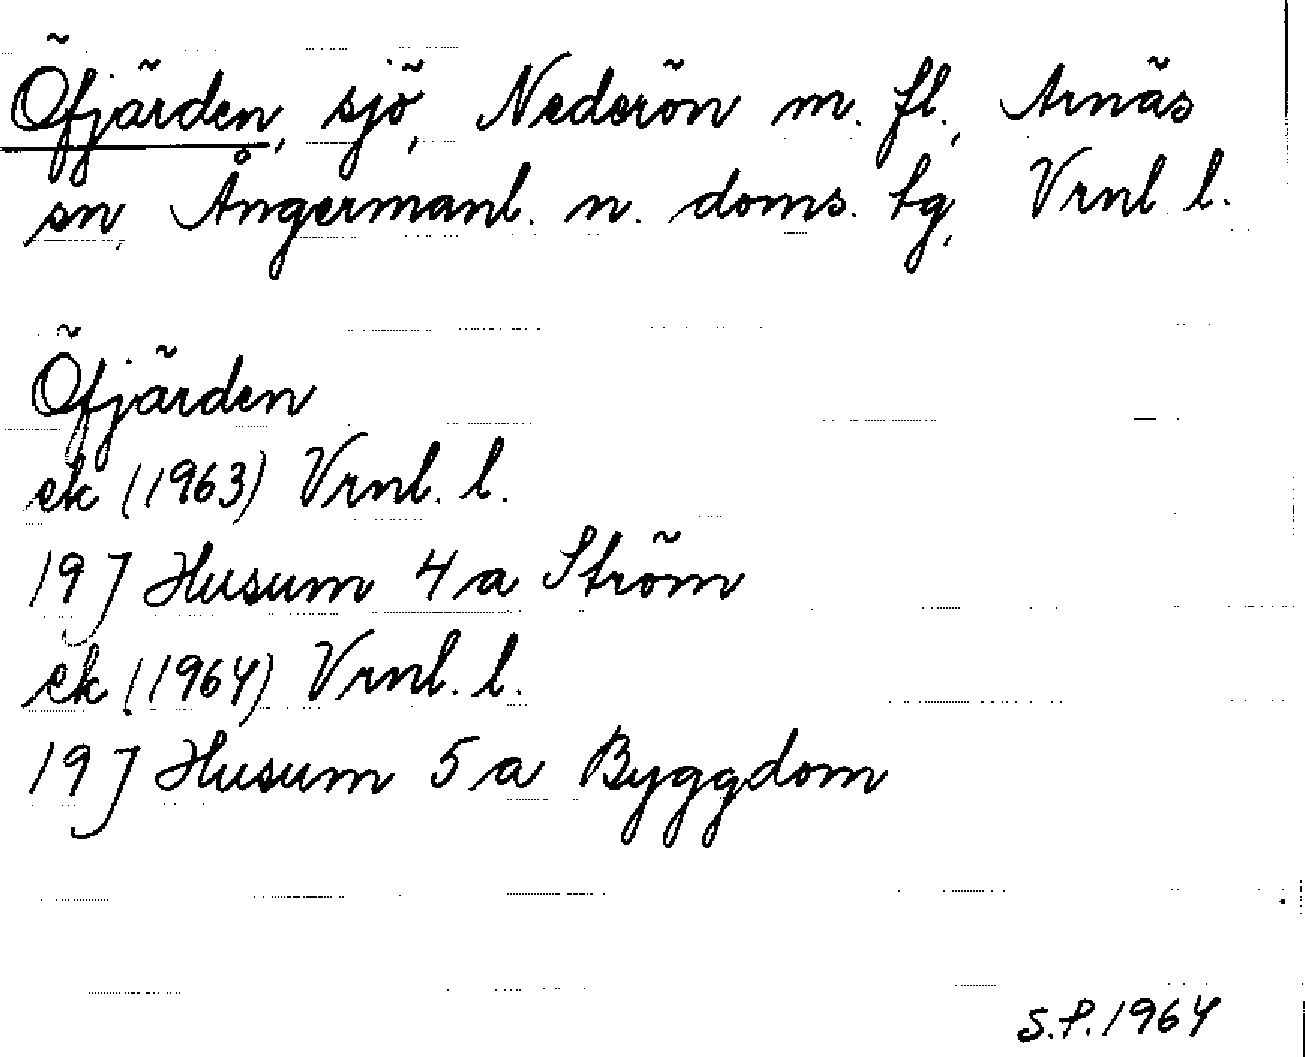 Öfjärden, sjö, Nederön m. fl., Arnäs
sn, Ångermanl. n. doms. tg, Vrnl l.
Öfjärden
ek (1963) Vrnl. l.
19 J Husum 4 a Ström
ek (1964) Vrnl. l.
19 J Husum 5 a Byggdom
S.P. 1964